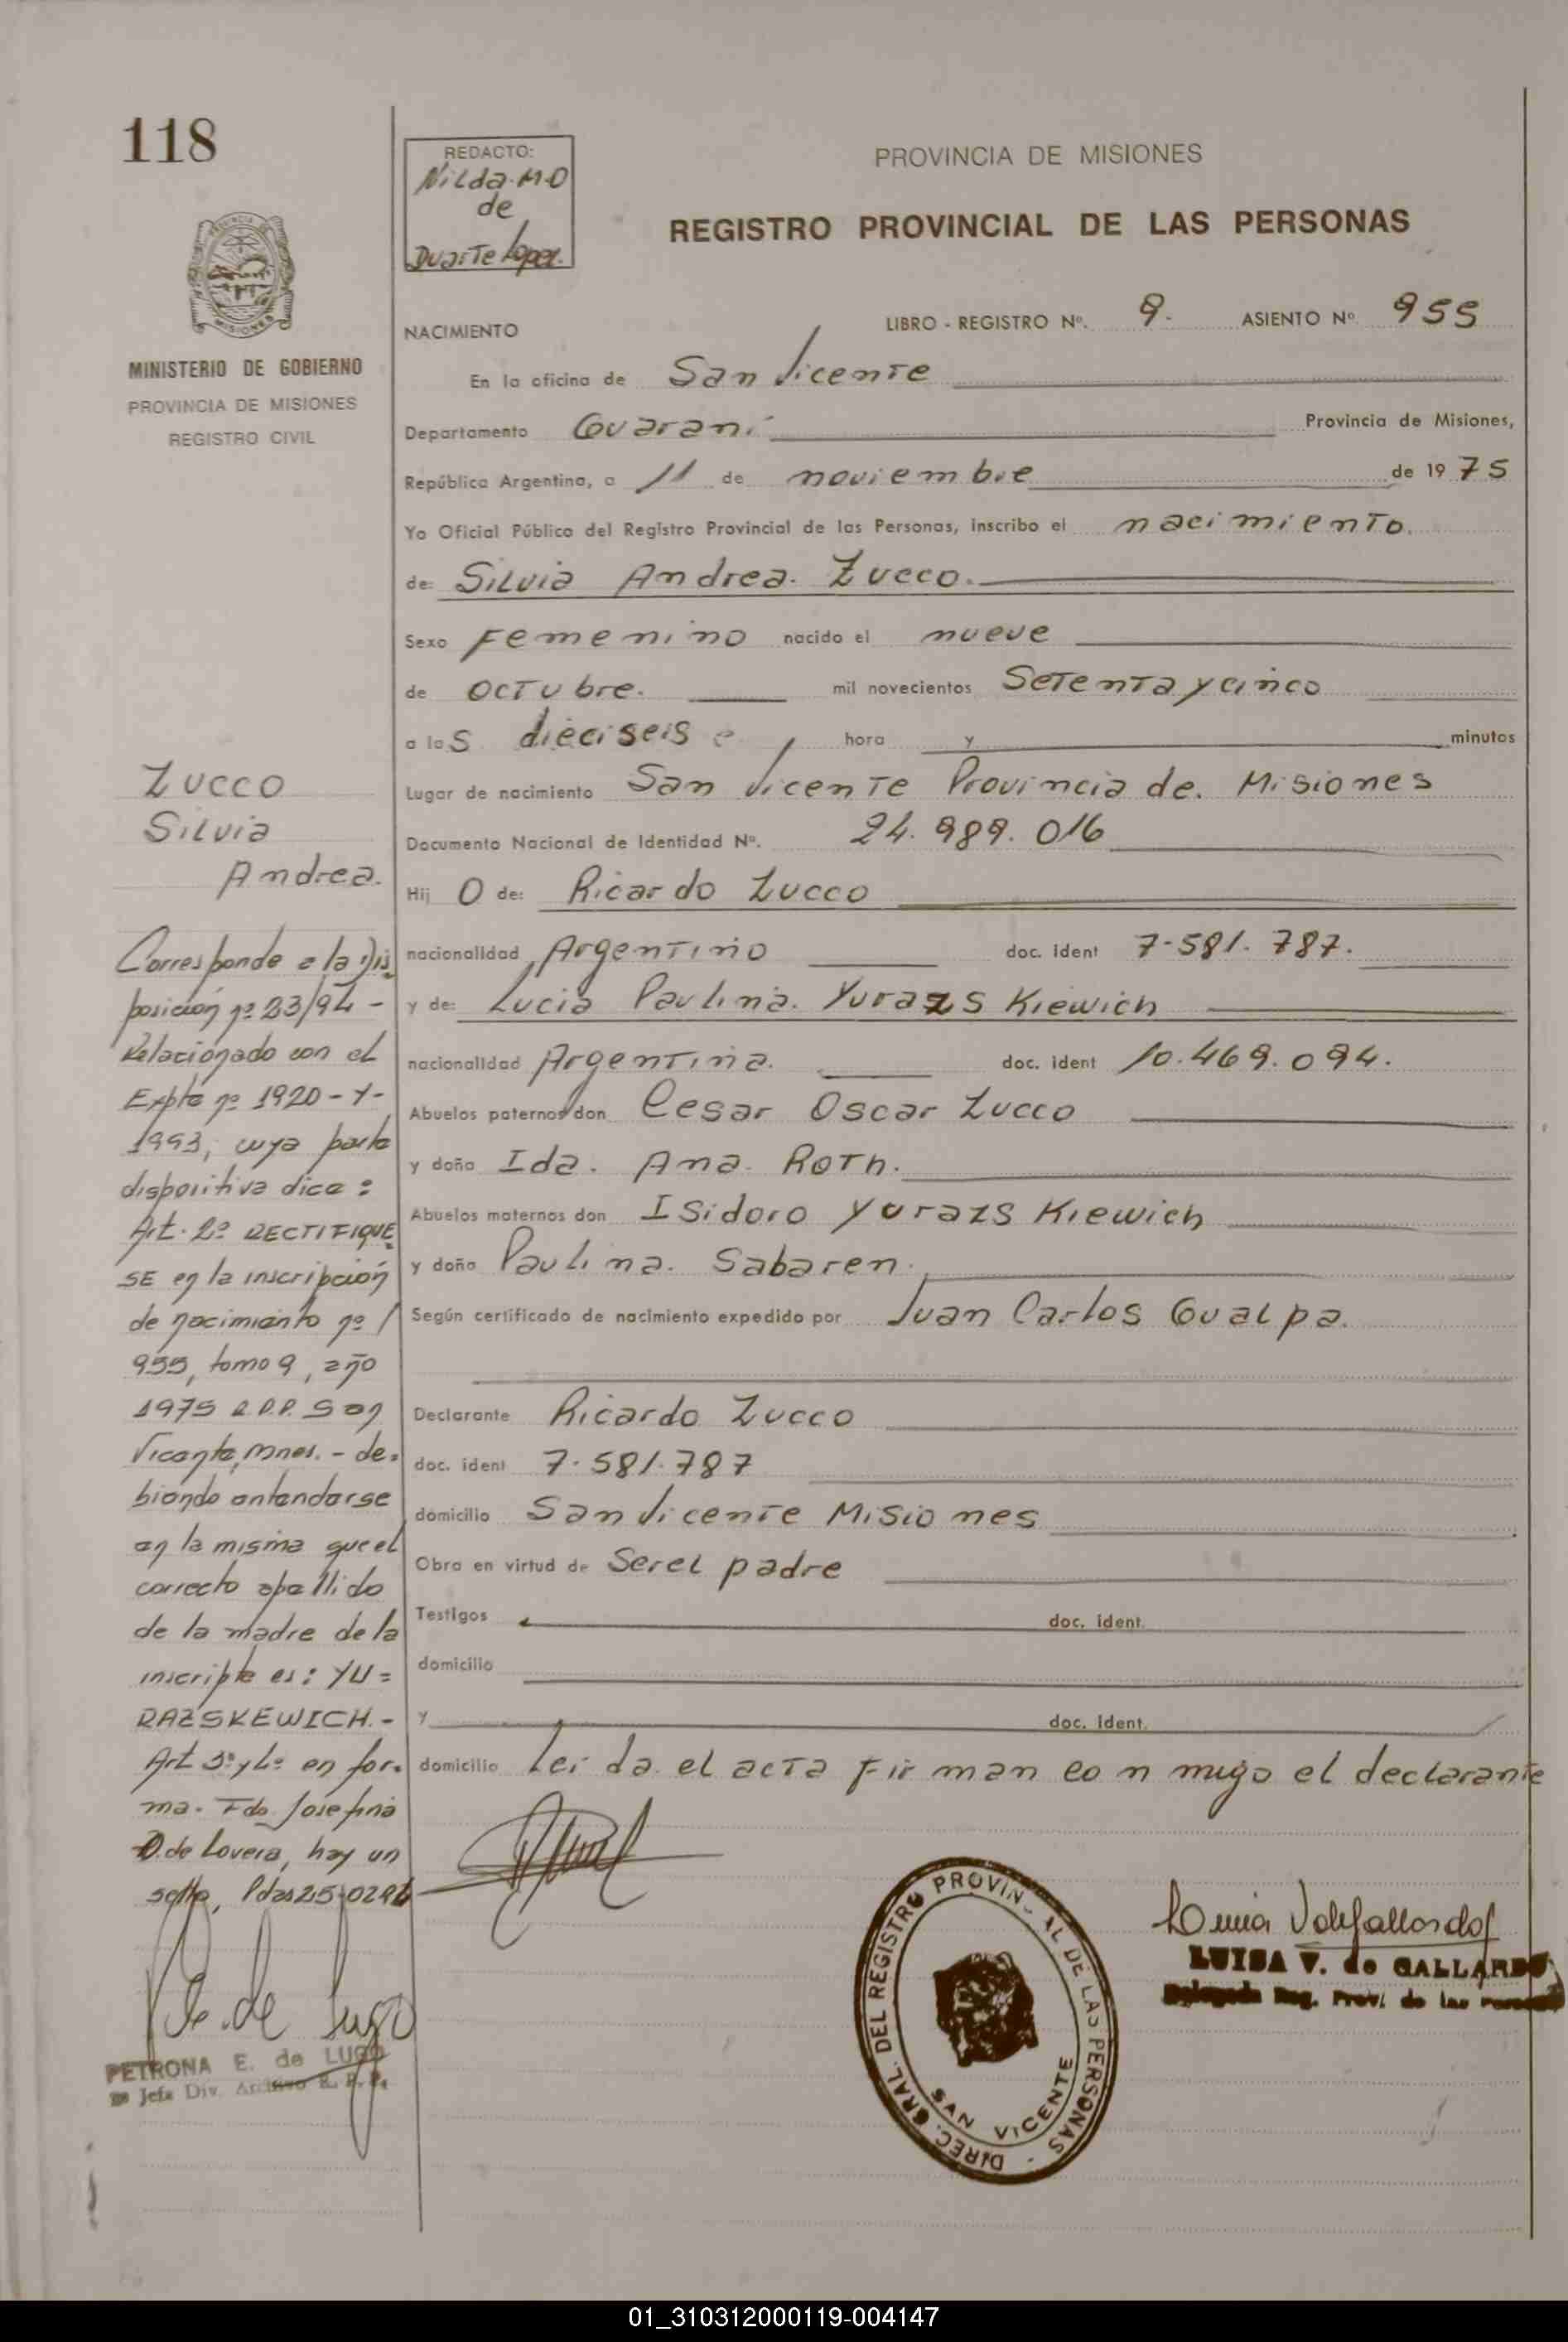 118
REDACTO:
Nilda M.O
de
Duarte Lopez.
PROVINCIA DE MISIONES
REGISTRO PROVINCIAL DE LAS PERSONAS
MINISTERIO DE GOBIERNO
PROVINCIA DE MISIONES
REGISTRO CIVIL
NACIMIENTO
LIBRO - REGISTRO Nº. 9. ASIENTO Nº 955
En la oficina de San Vicente
Departamento Guarani Provincia de Misiones,
República Argentina, a 11 de noviembre de 1975
Yo Oficial Público del Registro Provincial de las Personas, inscribo el nacimiento.
de: Silvia Andrea. Zucco.
Sexo Femenino nacido el nueve
de octubre. mil novecientos Setenta y cinco
a las dieciseis hora y minutos
Lugar de nacimiento San Vicente Provincia de. Misiones
Documento Nacional de Identidad Nº. 24.989.016
Hij O de: Ricardo Zucco
nacionalidad Argentino doc. ident 7.581.787.
y de: Lucia Paulina. Yurazs Kiewich
nacionalidad Argentina. doc. ident 10.469.094.
Abuelos paternos don Cesar Oscar Zucco
y doña Ida. Ana. Roth.
Abuelos maternos don Isidoro Yurazs Kiewich
y doña Paulina. Sabaren.
Según certificado de nacimiento expedido por Juan Carlos Gualpa.
Declarante Ricardo Zucco
doc. ident 7.581.787
domicilio San Vicente Misiones
Obra en virtud de Ser el padre
Testigos doc. ident.
domicilio
y doc. ident.
domicilio Leida el acta Firman conmigo el declarante
Zucco
Silvia
Andrea.
Corresponde a la Dis
posición nº 23/94 -
Relacionado con el
Expte nº 1920 - Y -
1993, cuya parte
dispositiva dice:
Art. 2º RECTIFIQUE
SE en la inscripción
de nacimiento nº
955, tomo 9, año
1975 R.P.P. San
Vicente, Mnes. - de-
biendo entenderse
en la misma que el
correcto apellido
de la madre de la
inscripta es: YU=
RAZSKEWICH.-
Art 3º y 4º en for-
ma. Fdo. Josefina
D. de Lovera, hay un
sello, Pdas 25-02-94
PETRONA E. de LUGO
Jefa Div. Archivo R. P. P.
DIREC. GRAL. DEL REGISTRO PROVINCIAL DE LAS PERSONAS
SAN VICENTE
LUISA V. de GALLARDO
Delegada Reg. Prov. de las Personas
01_310312000119-004147